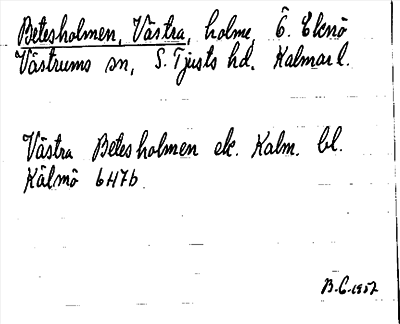 Betesholmen, Västra, holme, Ö. Ekenö
Västrums sn, S. Tjusts hd. Kalmar l.
Västra Betesholmen ek. Kalm. bl.
Kälmö 6H7b
B.C. 1957